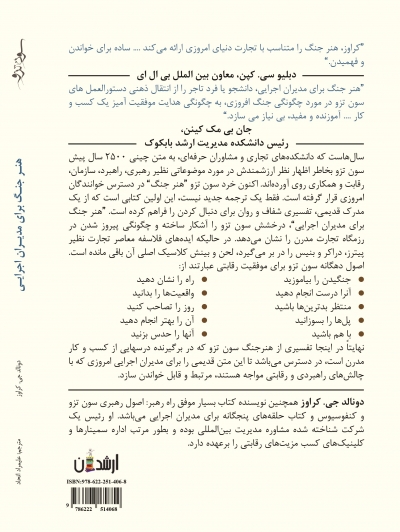 "کراوز، هنر جنگ را متناسب با تجارت دنیای امروزی ارائه می‌کند .... ساده برای خواندن و فهمیدن."
دبلیو سی. کپن، معاون بین الملل بی ال ای
"هنر جنگ برای مدیران اجرایی، دانشجو یا فرد تاجر را از انتقال ذهنی دستورالعمل های
سون تزو در مورد چگونگی جنگ افروزی، به چگونگی هدایت موفقیت آمیز یک کسب و
کار .... آموزنده و مفید، بی نیاز می سازد."
جان بی مک کینن،
رئیس دانشکده مدیریت ارشد بابکوک
سال‌هاست که دانشکده‌های تجاری و مشاوران حرفه‌ای، به متن چینی ۲۵۰۰ سال پیش
سون تزو بخاطر اظهار نظر ارزشمندش در مورد موضوعاتی نظیر رهبری، راهبرد، سازمان،
رقابت و همکاری روی آورده‌اند. اکنون خرد سون تزو "هنر جنگ" در دسترس خوانندگان
امروزی قرار گرفته است. فقط یک ترجمه جدید نیست، این اولین کتابی است که از یک
مدرک قدیمی، تفسیری شفاف و روان برای دنبال کردن را فراهم کرده است. "هنر جنگ
برای مدیران اجرایی"، درخشش سون تزو را آشکار ساخته و چگونگی پیروز شدن در
رزمگاه تجارت مدرن را نشان می‌دهد. در حالیکه ایده‌های فلاسفه معاصر تجارت نظیر
پیترز، دراکر و بنیس را در بر می‌گیرد، لحن و بینش کلاسیک اصلی آن باقی مانده است.
اصول دهگانه سون تزو برای موفقیت رقابتی عبارتند از:
• جنگیدن را بیاموزید • راه را نشان دهید
• آنرا درست انجام دهید • واقعیت‌ها را بدانید
• منتظر بدترین‌ها باشید • روز را تصاحب کنید
• پل‌ها را بسوزانید • آن را بهتر انجام دهید
• با هم باشید • آنها را حدس بزنید
نهایتاً در اینجا تفسیری از هنرجنگ سون تزو که در برگیرنده درسهایی از کسب و کار
مدرن است، در دسترس می‌باشد تا این متن قدیمی را برای مدیران اجرایی امروزی که با
چالش‌های راهبردی و رقابتی مواجه هستند، مرتبط و قابل خواندن سازد.
دونالد جی. کراوز همچنین نویسنده کتاب بسیار موفق راه رهبر: اصول رهبری سون تزو
و کنفوسیوس و کتاب حلقه‌های پنجگانه برای مدیران اجرایی می‌باشد. او رئیس یک
شرکت شناخته شده مشاوره مدیریت بین‌المللی بوده و بطور مرتب اداره سمینارها و
کلینیک‌های کسب مزیت‌های رقابتی را برعهده دارد.
ارشدان
ISBN:978-622-251-406-8
9 786222 514068
سون تزو
هنر جنگ برای مدیران اجرایی
دونالد جی. کراوز